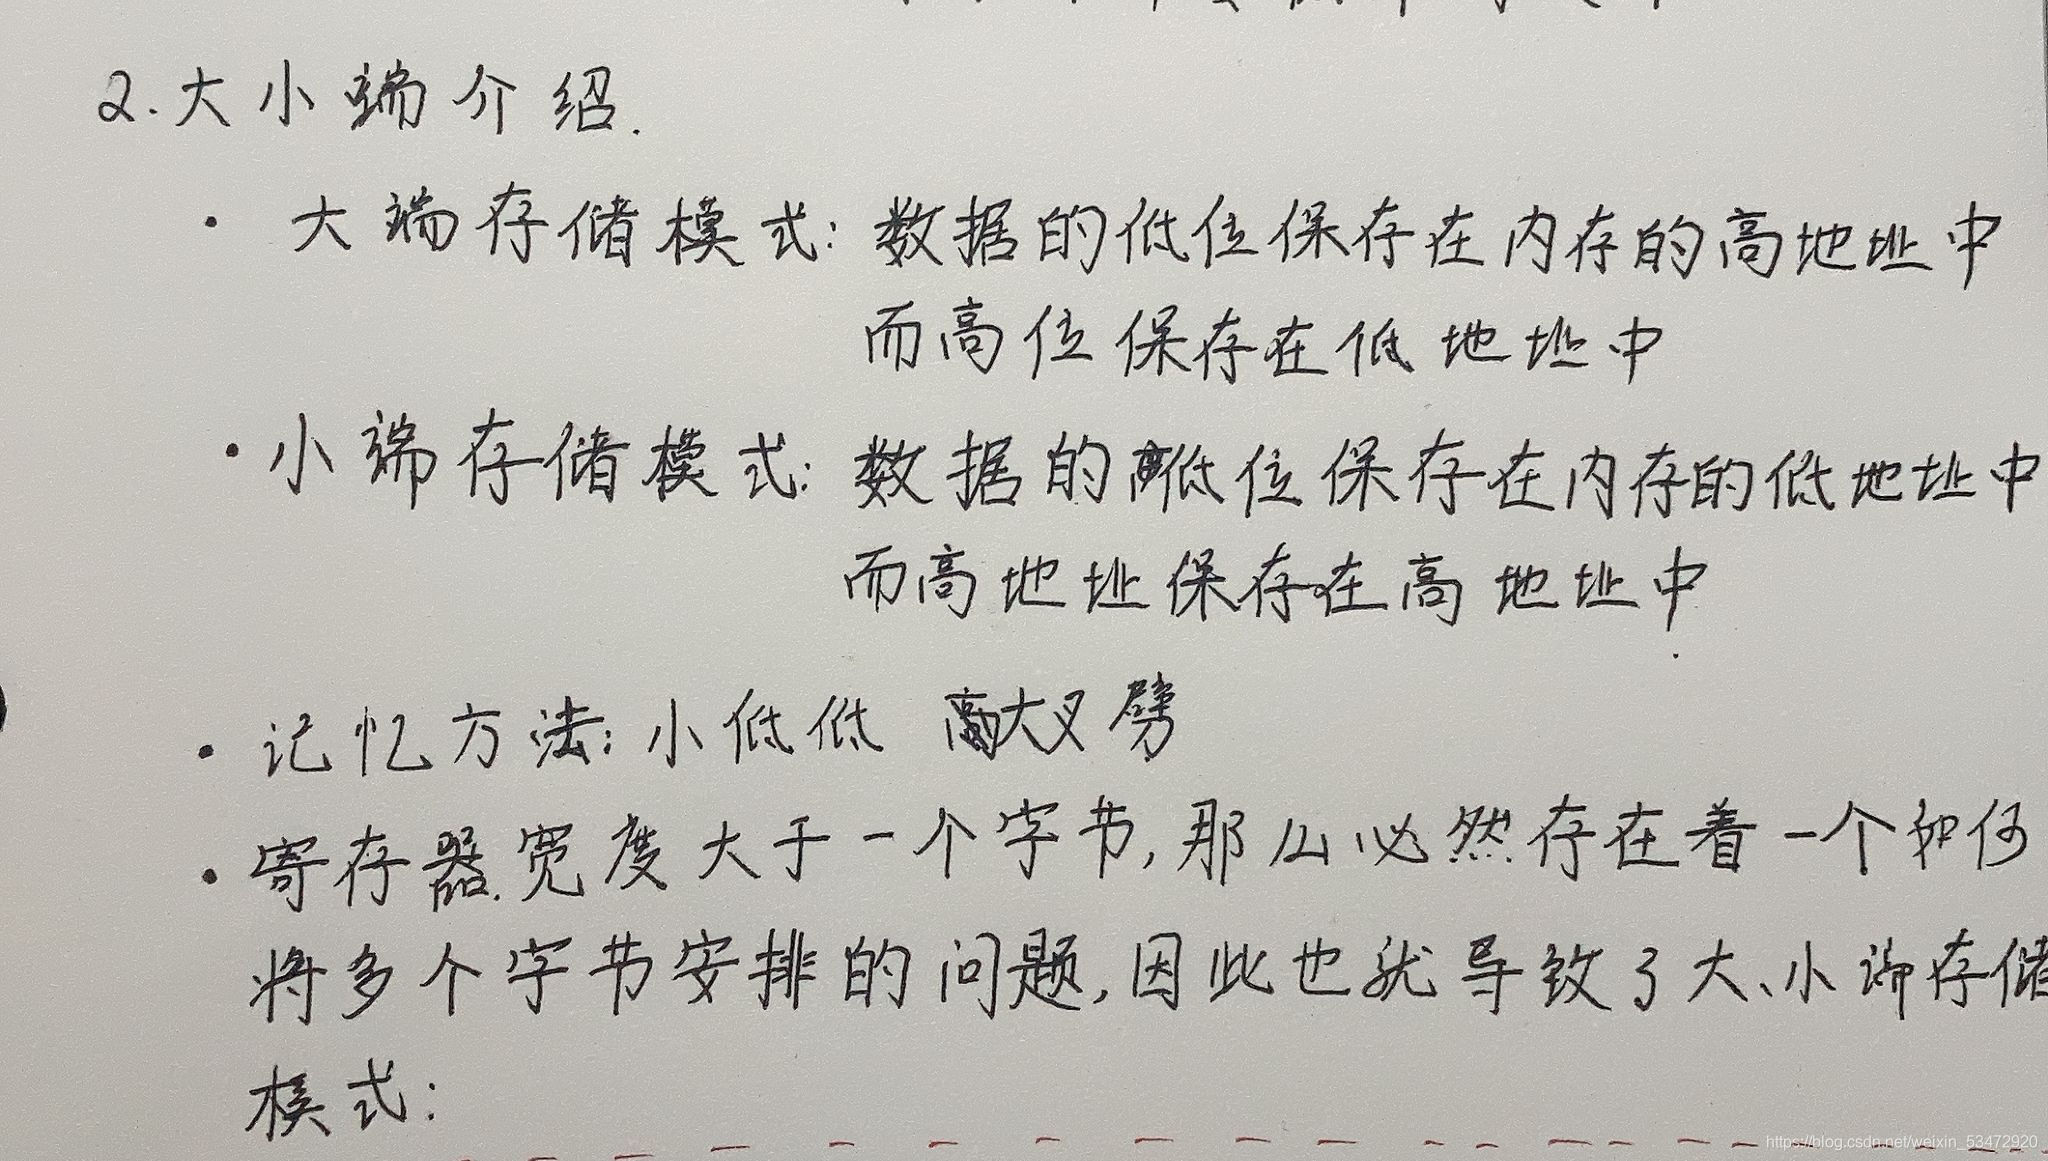 2.大小端介绍.
· 大端存储模式: 数据的低位保存在内存的高地址中
而高位保存在低地址中
· 小端存储模式: 数据的低位保存在内存的低地址中
而高地址保存在高地址中
· 记忆方法: 小低低 大叉劈
· 寄存器宽度大于一个字节,那么必然存在着一个如何
将多个字节安排的问题,因此也就导致了大、小端存储
模式:
https://blog.csdn.net/weixin_53472920